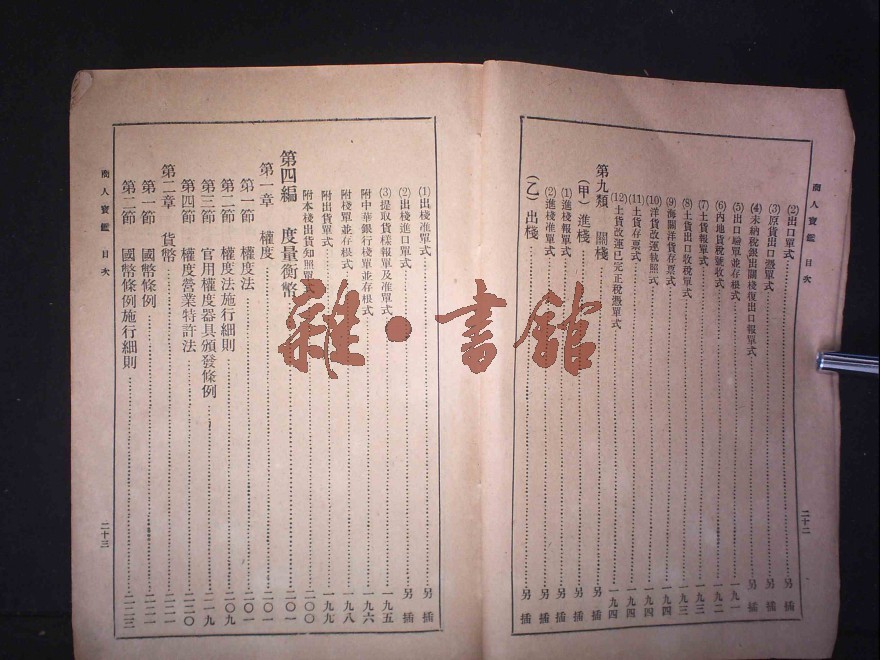 商人寶鑑 目次
二十二
(2)出口單式……另插
(3)原貨出口憑單式……另插
(4)未納稅銀出關棧復出口報單式……另插
(5)出口驗單並存根式……一九一
(6)內地貨稅號收式……一九二
(7)土貨報單式……一九三
(8)土貨出口收稅單式……一九三
(9)海關洋貨存票式……一九四
(10)洋貨改運執照式……一九四
(11)土貨存票式……一九四
(12)土貨改運已完正稅憑單式……一九四
第九類 關棧……另插
(甲)進棧……另插
(1)進棧報單式……另插
(2)進棧准單式……另插
(乙)出棧……另插
(1)出棧准單式……另插
(2)出棧進口單式……另插
(3)提取貨樣報單及准單式……一九五
附中華銀行棧單並存根式……一九六
附棧單並存根式……一九八
附出貨單式……一九九
附本棧出貨知照單式……二〇〇
第四編 度量衡幣……二〇一
第一章 權度……二〇一
第一節 權度法……二〇一
第二節 權度法施行細則……二〇九
第三節 官用權度器具頒發條例……二一九
第四節 權度營業特許法……二二〇
第二章 貨幣……二二一
第一節 國幣條例……二二一
第二節 國幣條例施行細則……二二三
商人寶鑑 目次
二十三
雜·書館